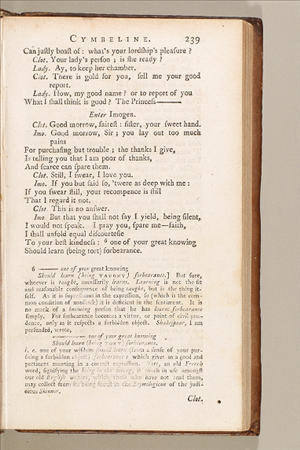 CYMBELINE. 239
Can justly boast of: what's your lordship's pleasure?
Clot. Your lady's person; is she ready?
Lady. Ay, to keep her chamber.
Clot. There is gold for you, sell me your good
report.
Lady. How, my good name? or to report of you
What I shall think is good? The Princess———
Enter Imogen.
Clot. Good morrow, fairest: sister, your sweet hand.
Imo. Good morrow, Sir; you lay out too much
pains
For purchasing but trouble; the thanks I give,
Is telling you that I am poor of thanks,
And scarce can spare them.
Clot. Still, I swear, I love you.
Imo. If you but said so, 'twere as deep with me:
If you swear still, your recompence is still
That I regard it not.
Clot. This is no answer.
Imo. But that you shall not say I yield, being silent,
I would not speak. I pray you, spare me—faith,
I shall unfold equal discourtesie
To your best kindness: 6 one of your great knowing
Should learn (being tort) forbearance.
6 ——— one of your great knowing
Should learn (being TAUGHT) forbearance.] But sure,
whoever is taught, necessarily learns. Learning is not the fit
and reasonable consequence of being taught, but is the thing it-
self. As it is superfluous in the expression, so (which is the com-
mon condition of it) is deficient in the sentiment. It is
no mark of a knowing person that he has learnt forbearance
simply. For forbearance becomes a virtue, or point of civil pru-
dence, only as it respects a forbidden object. Shakespear, I am
persuaded, wrote,
——— one of your great knowing
Should learn (being TORT) forbearance.
i. e. one of your wisdom should learn (from a sense of your pur-
suing a forbidden object) forbearance: which gives us a good and
pertinent meaning in a correct expression. Tort, an old French
word, signifying the being in the wrong, is much in use amongst
our old English writers, which those who have not read them,
may collect from its being found in the Etymologicon of the judi-
cious Skinner.
Clot.